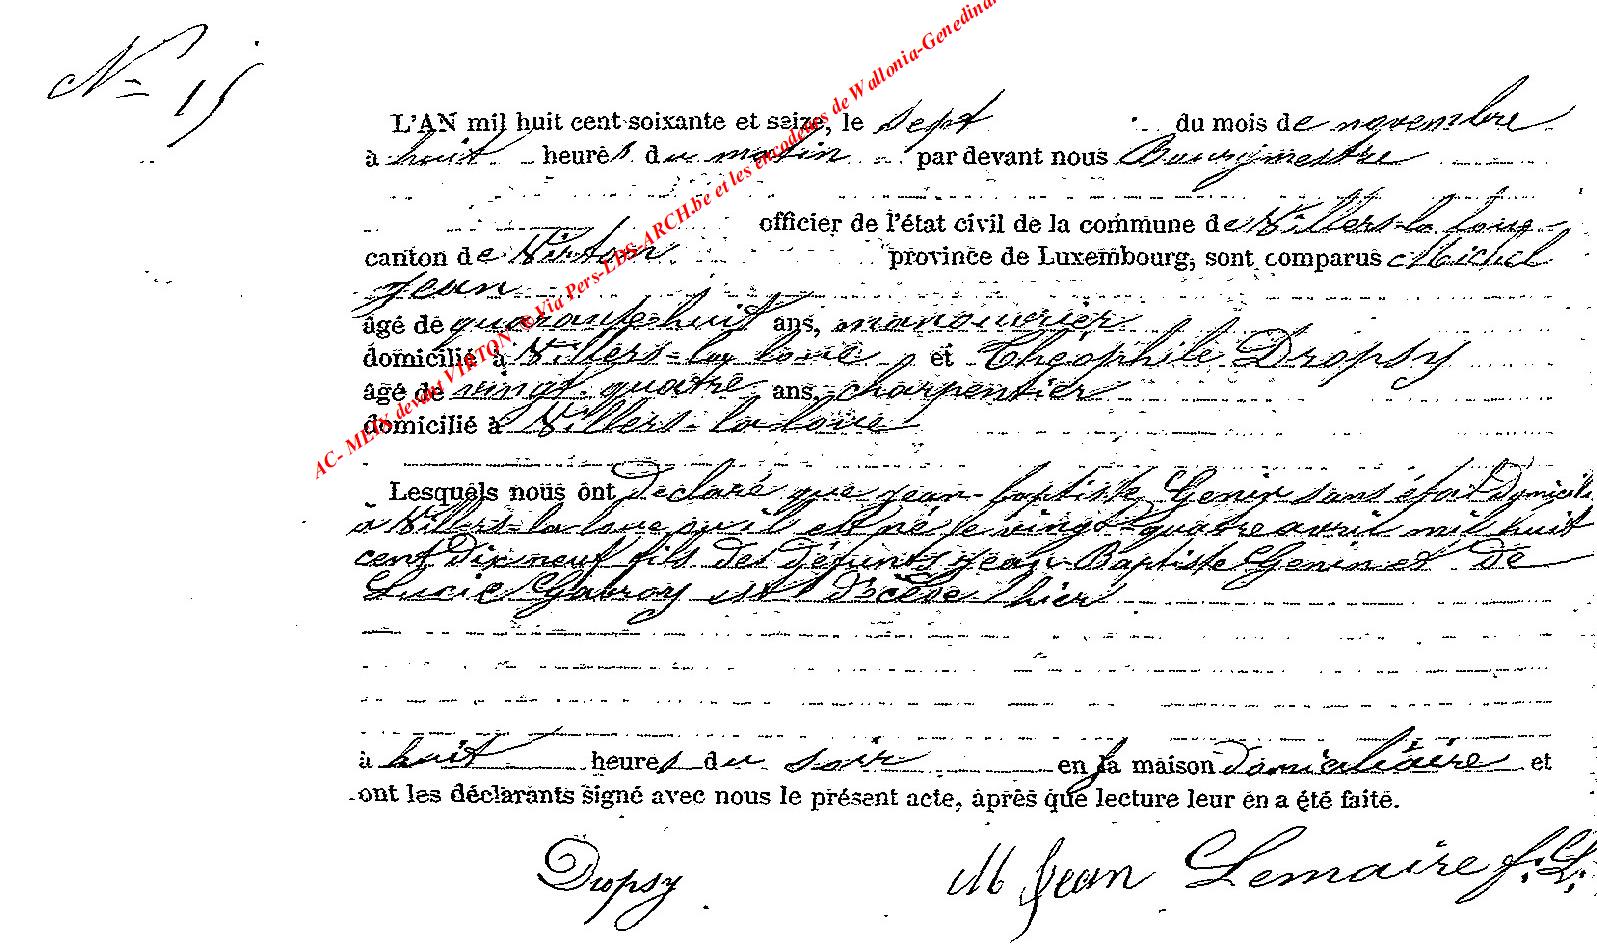 N° 15
L'AN mil huit cent soixante et seize, le sept du mois de novembre
à huit heures du matin par devant nous Bourgmestre
officier de l'état civil de la commune de Villers-la-loue
canton de Virton province de Luxembourg, sont comparus Michel
Jean
âgé de quarante-huit ans, manouvrier
domicilié à Villers-la loue, et Théophile Dropsy
âgé de vingt-quatre ans, charpentier
domicilié à Villers-la loue
Lesquels nous ont déclaré que jean-baptiste Genin sans état domicilié
à Villers-la loue qu'il est né le vingt-quatre avril mil huit
cent dix neuf fils des défunts jean-Baptiste Genin et de
Lucie Gavroy est décédé hier
à huit heures du soir en la maison domiciliaire et
ont les déclarants signé avec nous le présent acte, après que lecture leur en a été faite.
Dropsy M Jean Lemaire f. L.
AC- MEIX devant VIRTON ® Via Pers-LDS-ARCH.be et les encodeurs de Wallonia-Genedinan